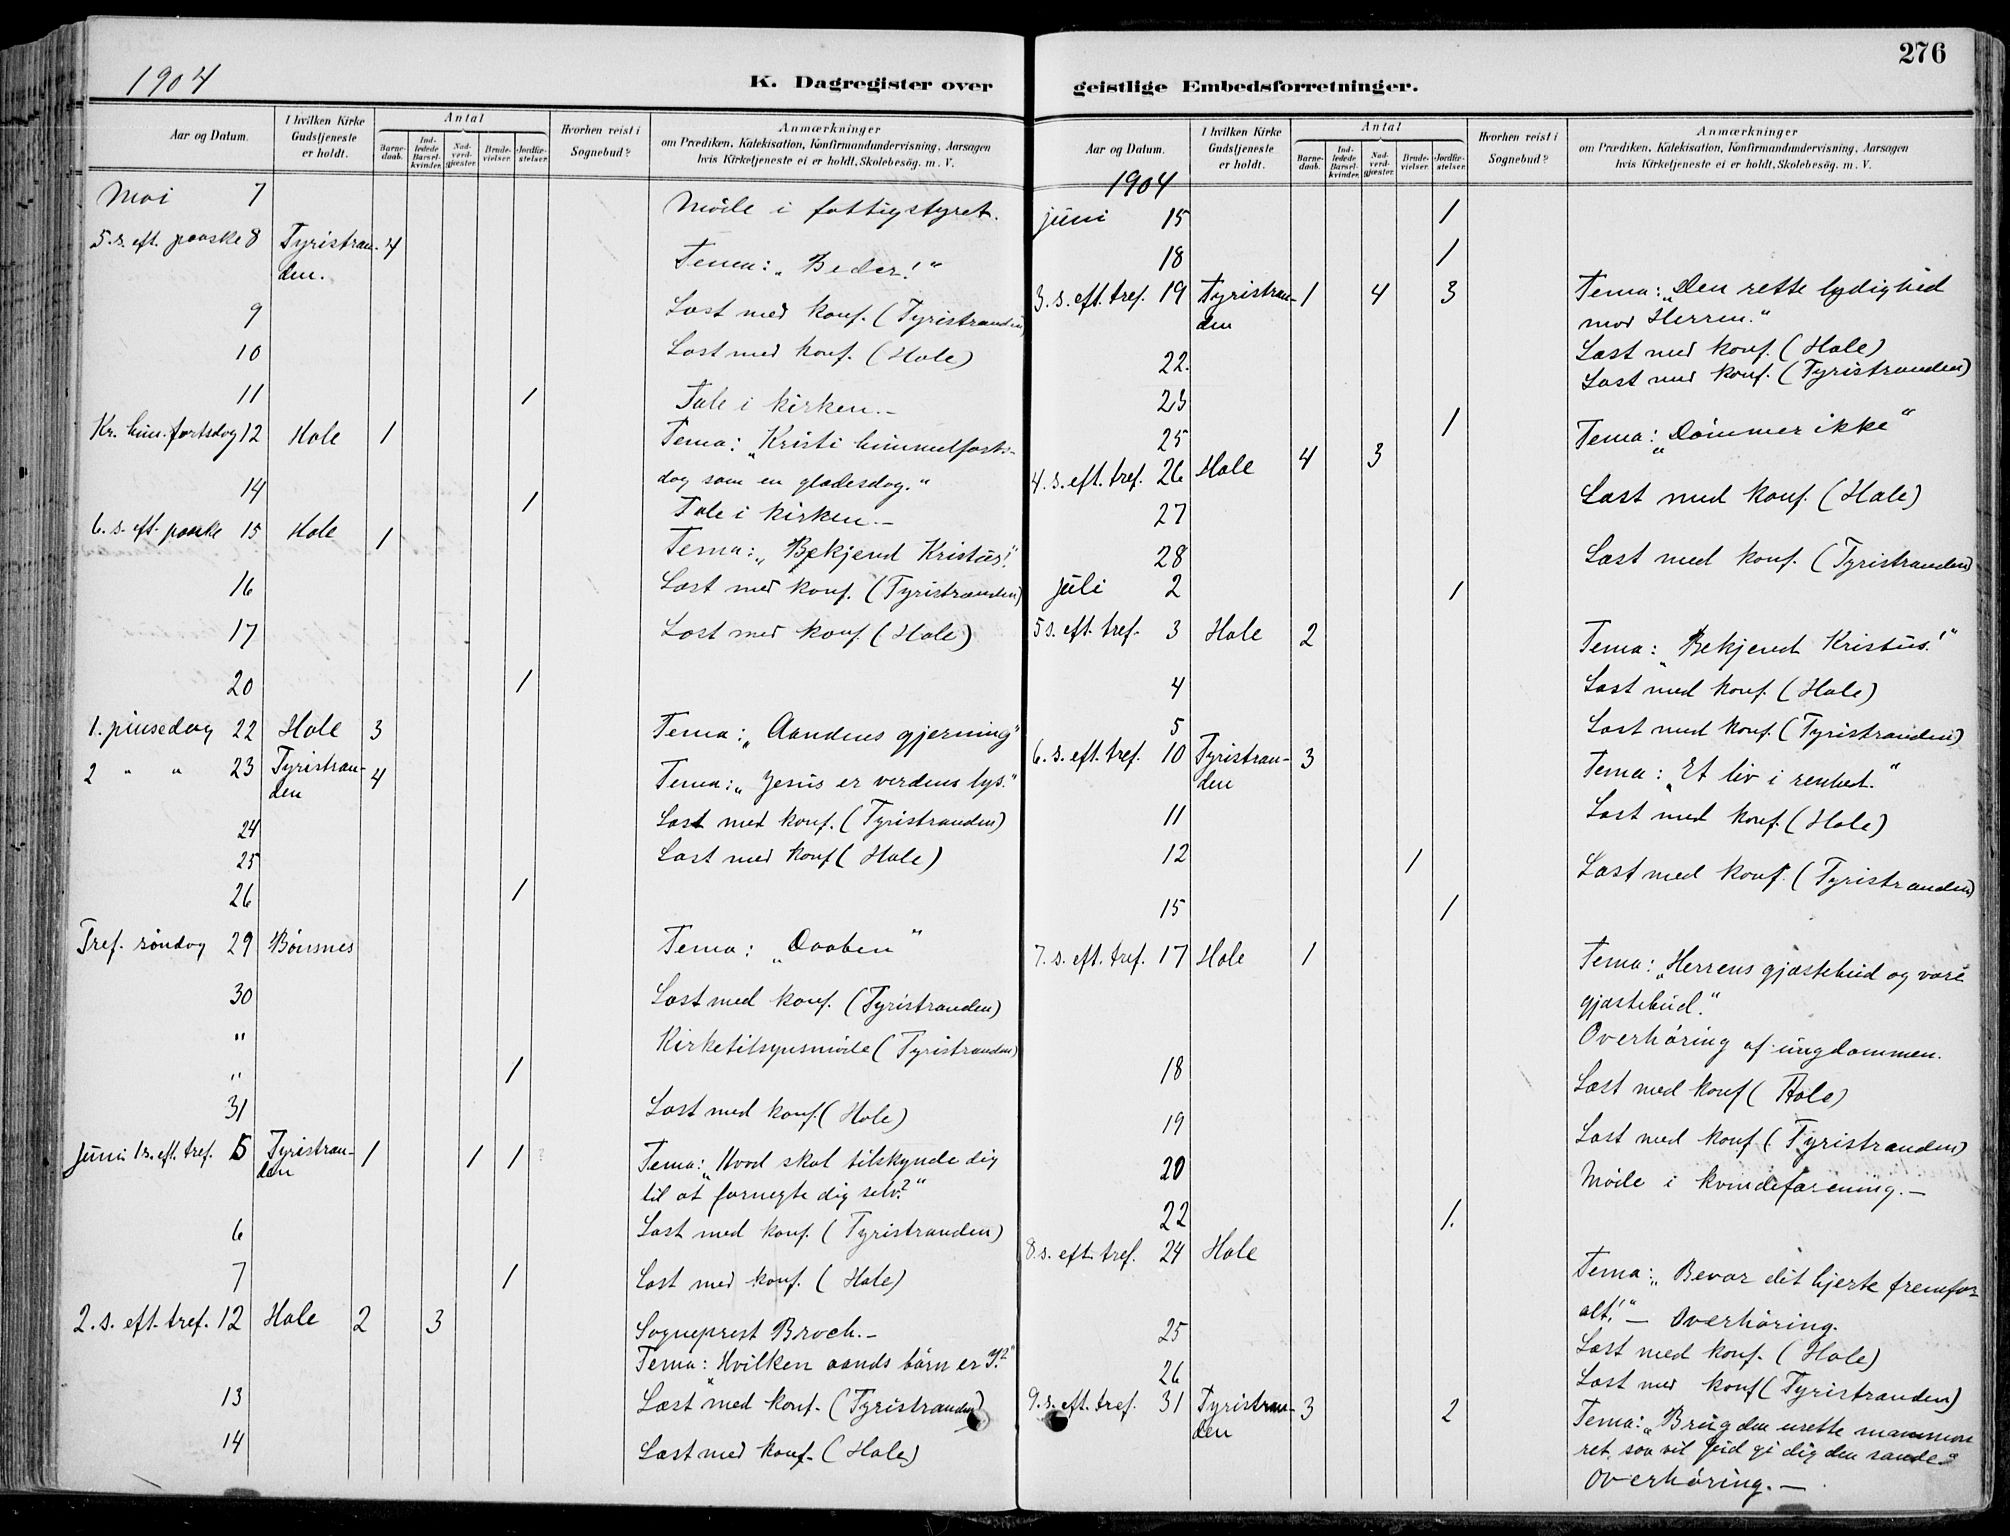 1904
K. Dagregister over
Aar og Datum.
I hvilken Kirke Gudstjeneste er holdt.
Antal
Barnedaab.
Indledede Barselkvinder.
Nadverdgjæster.
Brudevielser.
Jordfæstelser.
Hvorhen reist i Sognebud?
Anmærkninger
om Prædiken, Katekisation, Konfirmandundervisning, Aarsagen
hvis Kirketjeneste ei er holdt, Skolebesög. m. V.
Mai 7 Möde i fattigstyret.
5. s. eft. paaske 8 Tyristran- 4
den. Tema: „Beder!“
9 Læst med konf. (Tyristranden)
10 Læst med konf. (Hole)
11 1 Tale i kirken.-
Kr. him. fartsdag 12 Hole 1 Tema: „Kristi himmelfarts-
dag som en glædesdag.“
14 1 Tale i kirken.-
6. s. eft. paaske 15 Hole 1 Tema: „Bekjend Kristus!“
16 Læst med konf. (Tyristranden)
17 Læst med konf. (Hole)
20 1
1. pinsedag 22 Hole 3 Tema: „Aandens gjerning“
2 " " 23 Tyristran- 4 Tema: „Jesus er verdens lys.“
den
24 Læst med konf. (Tyristranden)
25 Læst med konf (Hole)
26 1
Tref. söndag 29 Bönsnes Tema: „Daaben“
30 Læst med konf. (Tyristranden)
" Kirketilsynsmöde (Tyristranden)
" 1
31 Læst med konf. (Hole)
Juni 1 s. eft. tref. 5 Tyristran- 1 1 1 Tema: „Hvad skal tilskynde dig
den til at fornegte dig selv?“
6 Læst med konf. (Tyristranden)
7 1 Læst med konf. (Hole)
2. s. eft. tref. 12 Hole 2 3 Sogneprest Broch.-
Tema: „Hvilken aands börn er I?“
13 Læst med konf. (Tyristranden)
14 Læst med konf. (Hole)
276
geistlige Embedsforretninger.
Aar og Datum.
I hvilken Kirke Gudstjeneste er holdt.
Antal
Barnedaab.
Indledede Barselkvinder.
Nadverdgjæster.
Brudevielser.
Jordfæstelser.
Hvorhen reist i Sognebud?
Anmærkninger
om Prædiken, Katekisation, Konfirmandundervisning, Aarsagen
hvis Kirketjeneste ei er holdt, Skolebesög. m. V.
1904
Juni 15 1
18 1
3. s. eft. tref. 19 Tyristran- 1 4 3 Tema: „Den rette lydighed
den mod Herren.“
22. Læst med konf. (Hole)
23 Læst med konf. (Tyristranden)
25 1
4. s. eft. tref. 26 Hole 4 3 Tema: „Dömmer ikke“
27 Læst med konf. (Hole)
28 Læst med konf. (Tyristranden)
Juli 2 1
5 s. eft. tref. 3 Hole 2 Tema: „Bekjend Kristus!“
4 Læst med konf. (Hole)
5 Læst med konf. (Tyristranden)
6. s. eft. tref. 10 Tyristran- 3 Tema: „Et liv i renhed.“
den
11 Læst med konf. (Hole)
12 1 Læst med konf. (Tyristranden)
15 1
7. s. eft. tref. 17 Hole 1 Tema: „Herrens gjæstebud og vore
gjæstebud.“
Overhöring af ungdommen.
18 Læst med konf (Hole)
19 Læst med konf (Tyristranden)
20 Möde i kvindeforening.-
22 1.
8. s. eft. tref. 24 Hole Tema: „Bevar dit hjerte fremfor
alt!“ - Overhöring.
25 Læst med konf. (Hole)
26 Læst med konf (Tyristranden)
9. s. eft. tref. 31 Tyristran- 3 2 Tema: „Brug den urette mammon
den ret, saa vil Gud gi dig den sande.“
Overhöring.-